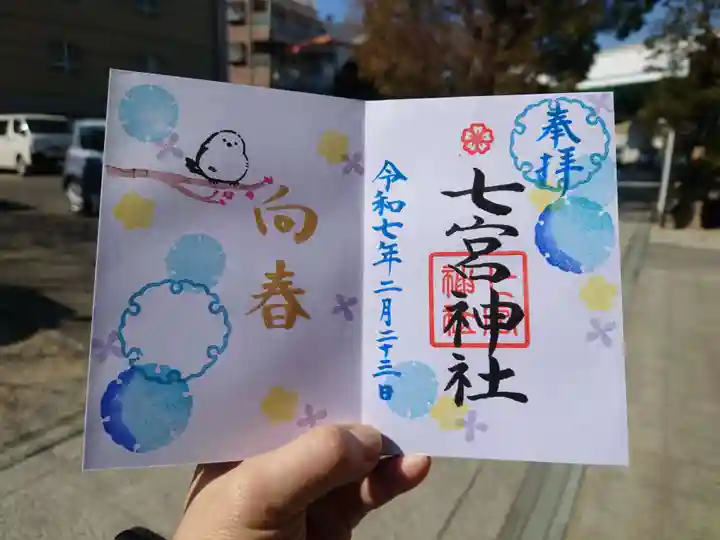 奉拝
七宮神社
令和七年二月二十三日
向春